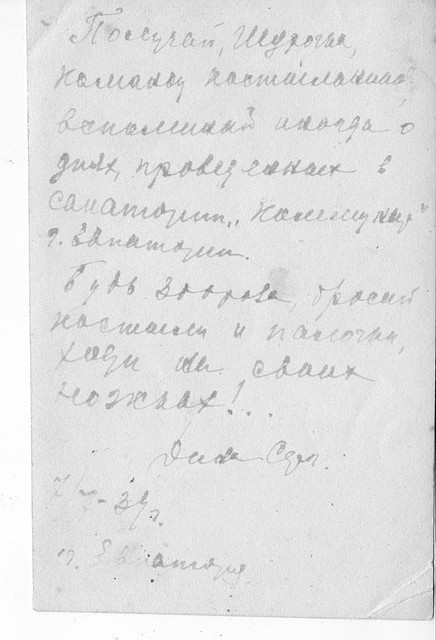 Получай, Шурочка,
команду костыльанию
вспоминай иногда о
днях, проведенных в
санатории „Коммунар"
г. Евпатории.
Будь здорова, бросай
костыли и палочки,
ходи на своих
ножках!..
7/7-39г.
г. Евпатория